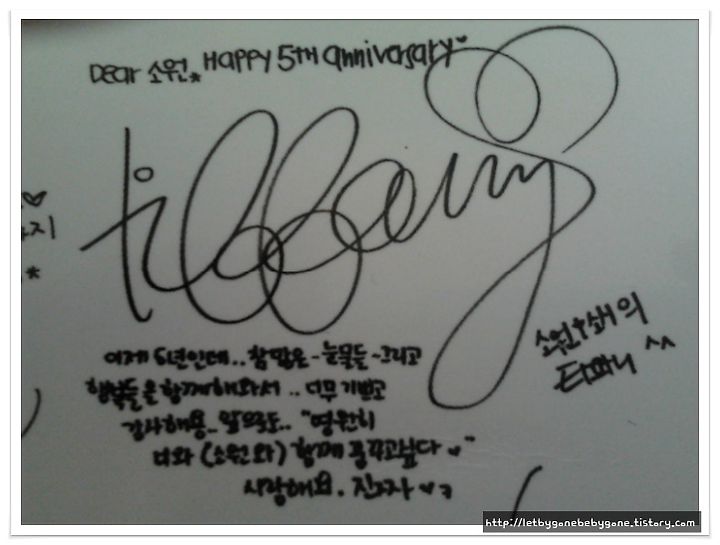 Dear 소원* Happy 5TH anniversary♥
tiffany
♥
지
*
소원+쇄의
티파니 ^^
이제 5년인데.. 참 많은 ~눈물들~그리고
행복들을 함께해와서.. 너무 기쁘고
감사해용_ 앞으로도.. "영원히
너와 (소원와) 함께 꿈꾸고싶다 ♥"
사랑해요. 진짜자 ♥ㅋ
http://letbygonebebygone.tistory.com